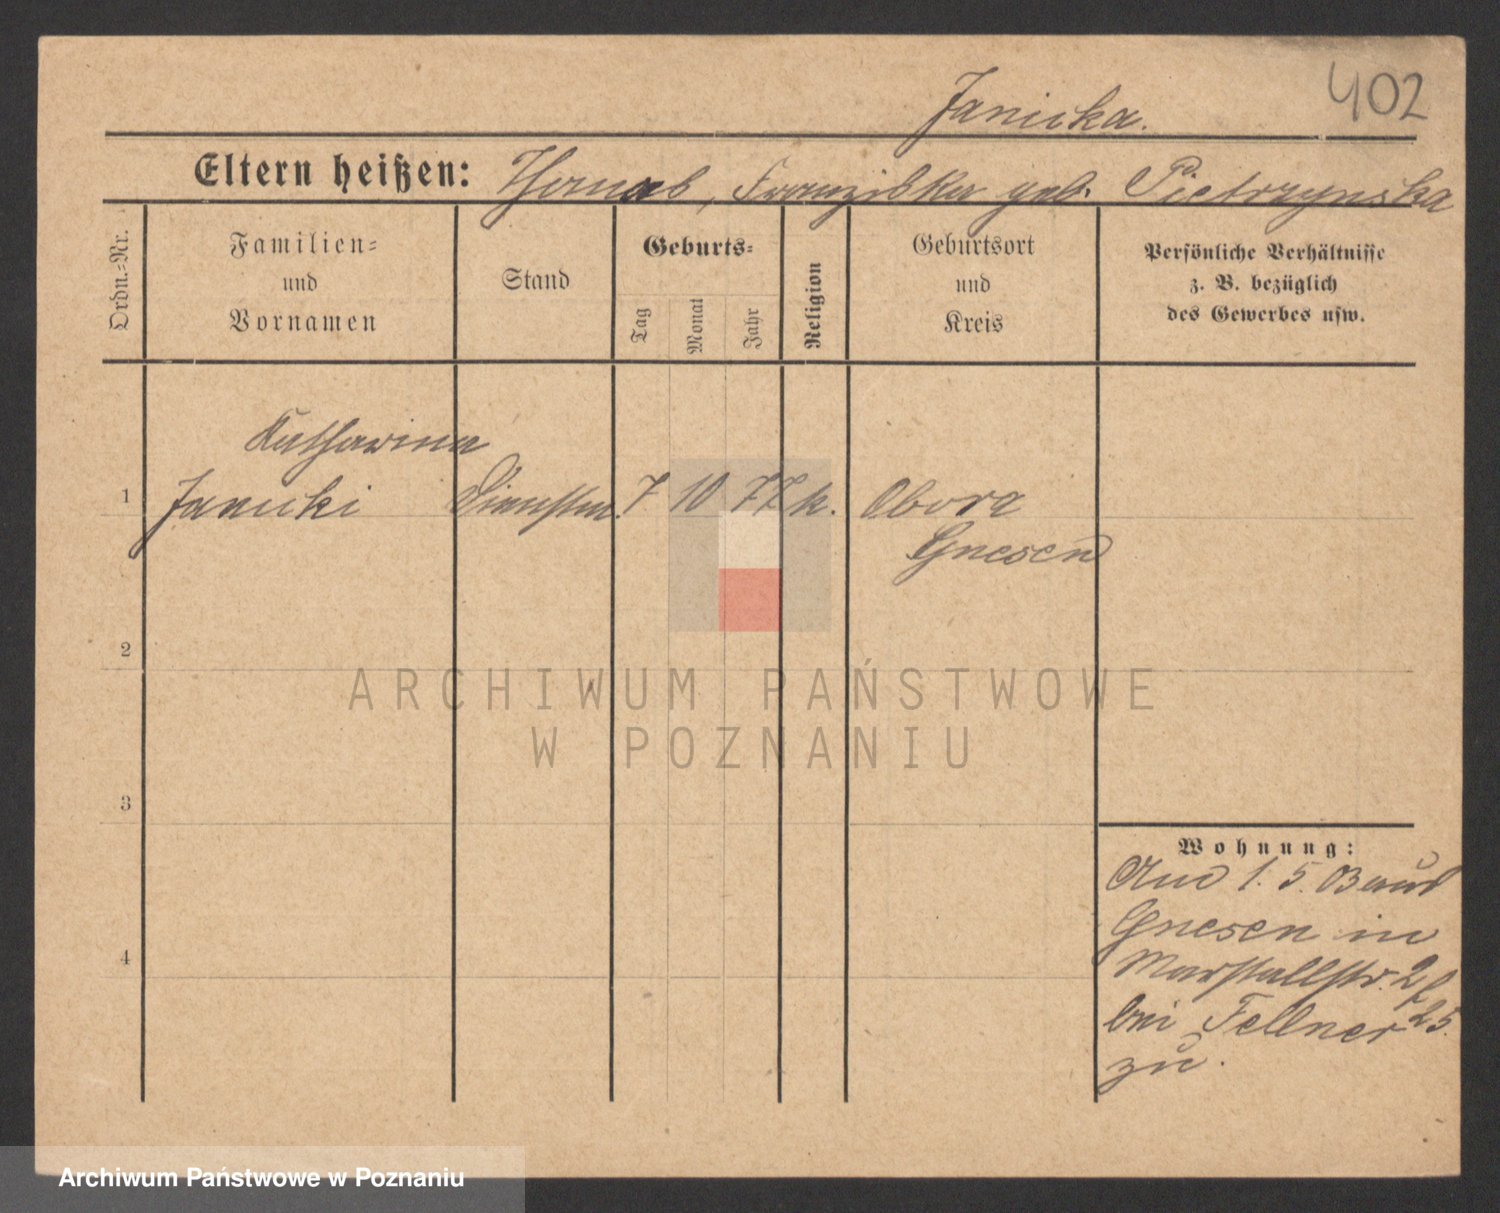 402
Janicka.
Eltern heißen: Thomas, Franziska geb. Pietrzynska
Ordn.-Nr.
Familien-
und
Vornamen
Stand
Geburts-
Tag
Monat
Jahr
Religion
Geburtsort
und
Kreis
Persönliche Verhältnisse
z. B. bezüglich
des Gewerbes usw.
Katharina
1 Janicki Dienstm. 7 10 77 k. Obora
Gnesen
2
ARCHIWUM PAŃSTWOWE
W POZNANIU
3
4
Wohnung:
Am 1. 5. 03 aus
Gnesen in
Marstallstr. 2
bei Fellner 25.
zu.
Archiwum Państwowe w Poznaniu